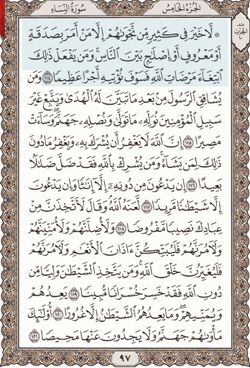 الجزء الخامس
سورة النساء
لَّا خَيْرَ فِي كَثِيرٍ مِّن نَّجْوَىٰهُمْ إِلَّا مَنْ أَمَرَ بِصَدَقَةٍ
أَوْ مَعْرُوفٍ أَوْ إِصْلَٰحٍۭ بَيْنَ ٱلنَّاسِ وَمَن يَفْعَلْ ذَٰلِكَ
ٱبْتِغَآءَ مَرْضَاتِ ٱللَّهِ فَسَوْفَ نُؤْتِيهِ أَجْرًا عَظِيمًا ١١٤ وَمَن
يُشَاقِقِ ٱلرَّسُولَ مِنۢ بَعْدِ مَا تَبَيَّنَ لَهُ ٱلْهُدَىٰ وَيَتَّبِعْ غَيْرَ
سَبِيلِ ٱلْمُؤْمِنِينَ نُوَلِّهِۦ مَا تَوَلَّىٰ وَنُصْلِهِۦ جَهَنَّمَ وَسَآءَتْ
مَصِيرًا ١١٥ إِنَّ ٱللَّهَ لَا يَغْفِرُ أَن يُشْرَكَ بِهِۦ وَيَغْفِرُ مَا دُونَ
ذَٰلِكَ لِمَن يَشَآءُ وَمَن يُشْرِكْ بِٱللَّهِ فَقَدْ ضَلَّ ضَلَٰلًۢا
بَعِيدًا ١١٦ إِن يَدْعُونَ مِن دُونِهِۦٓ إِلَّآ إِنَٰثًا وَإِن يَدْعُونَ
إِلَّا شَيْطَٰنًا مَّرِيدًا ١١٧ لَّعَنَهُ ٱللَّهُ وَقَالَ لَأَتَّخِذَنَّ مِنْ
عِبَادِكَ نَصِيبًا مَّفْرُوضًا ١١٨ وَلَأُضِلَّنَّهُمْ وَلَأُمَنِّيَنَّهُمْ
وَلَءَامُرَنَّهُمْ فَلَيُبَتِّكُنَّ ءَاذَانَ ٱلْأَنْعَٰمِ وَلَءَامُرَنَّهُمْ
فَلَيُغَيِّرُنَّ خَلْقَ ٱللَّهِ وَمَن يَتَّخِذِ ٱلشَّيْطَٰنَ وَلِيًّا مِّن
دُونِ ٱللَّهِ فَقَدْ خَسِرَ خُسْرَانًا مُّبِينًا ١١٩ يَعِدُهُمْ
وَيُمَنِّيهِمْ وَمَا يَعِدُهُمُ ٱلشَّيْطَٰنُ إِلَّا غُرُورًا ١٢٠ أُو۟لَٰٓئِكَ
مَأْوَىٰهُمْ جَهَنَّمُ وَلَا يَجِدُونَ عَنْهَا مَحِيصًا ١٢١
٩٧